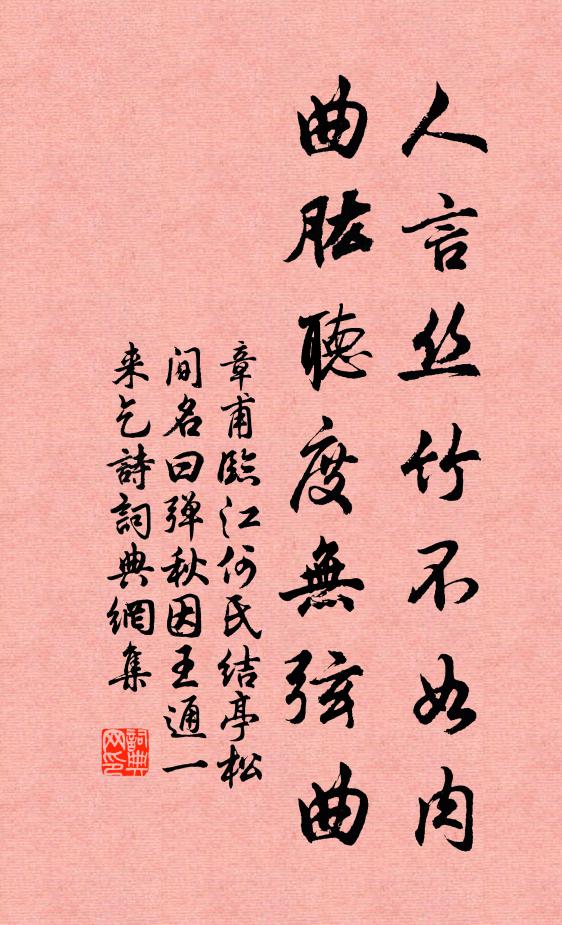 人言丝竹不如肉
曲肱聽度無弦曲
章甫臨江何氏结亭松
间名曰弹秋因王通一
来乞詩詞典網集
詞典网印